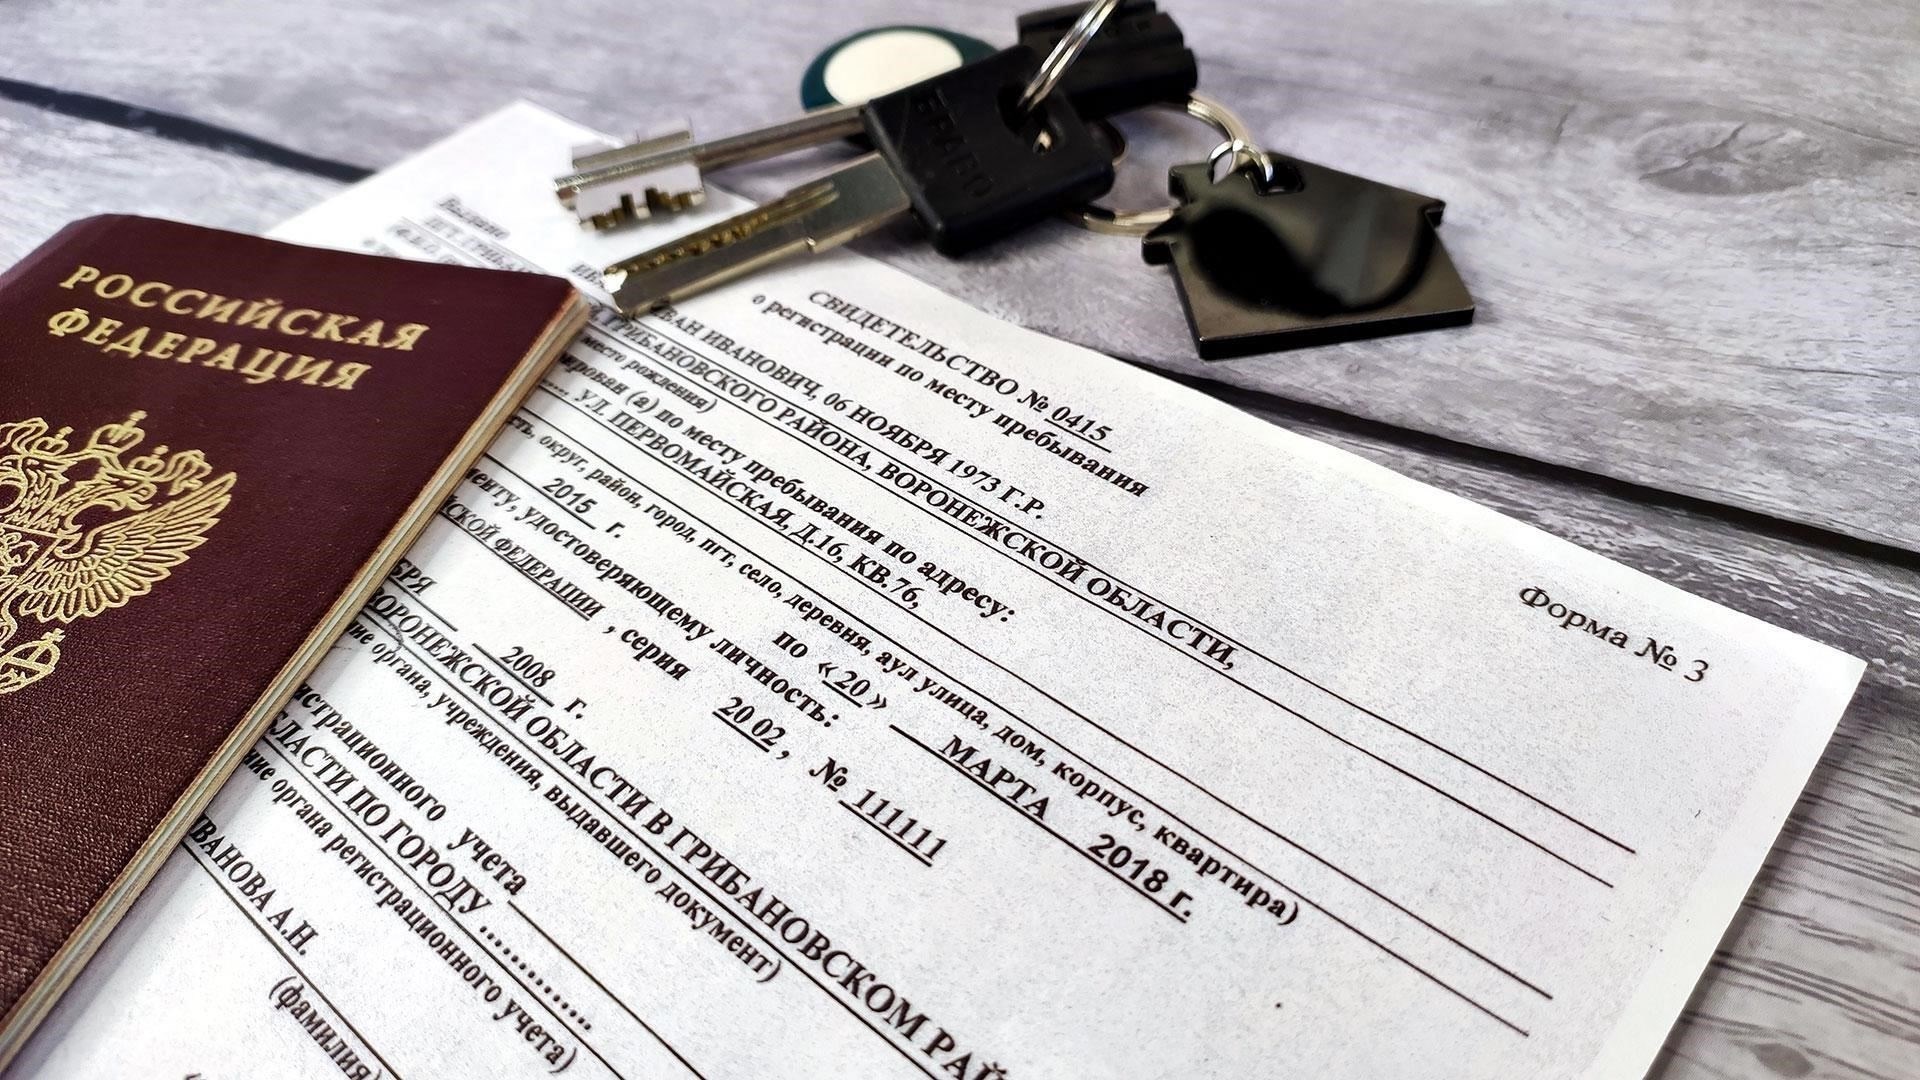 РОССИЙСКАЯ
ФЕДЕРАЦИЯ
БРАВО
Форма № 3
СВИДЕТЕЛЬСТВО № 0415
о регистрации по месту пребывания
ИВАНОВИЧ, 06 НОЯБРЯ 1973 Г.Р.
ГРИБАНОВСКОГО РАЙОНА, ВОРОНЕЖСКОЙ ОБЛАСТИ,
место рождения)
(а) по месту пребывания по адресу:
УЛ. ПЕРВОМАЙСКАЯ, Д.16, КВ.76,
округ, район, город, пгт, село, деревня, аул улица, дом, корпус, квартира)
2015 г. по «20» МАРТА 2018 г.
удостоверяющему личность:
ФЕДЕРАЦИИ, серия 20 02, № 111111
2008 г.
ВОРОНЕЖСКОЙ ОБЛАСТИ В ГРИБАНОВСКОМ
органа, учреждения, выдавшего документ)
учета
ПО ГОРОДУ
органа регистрационного учета)
ИВАНОВА А.Н.
(фамилия)